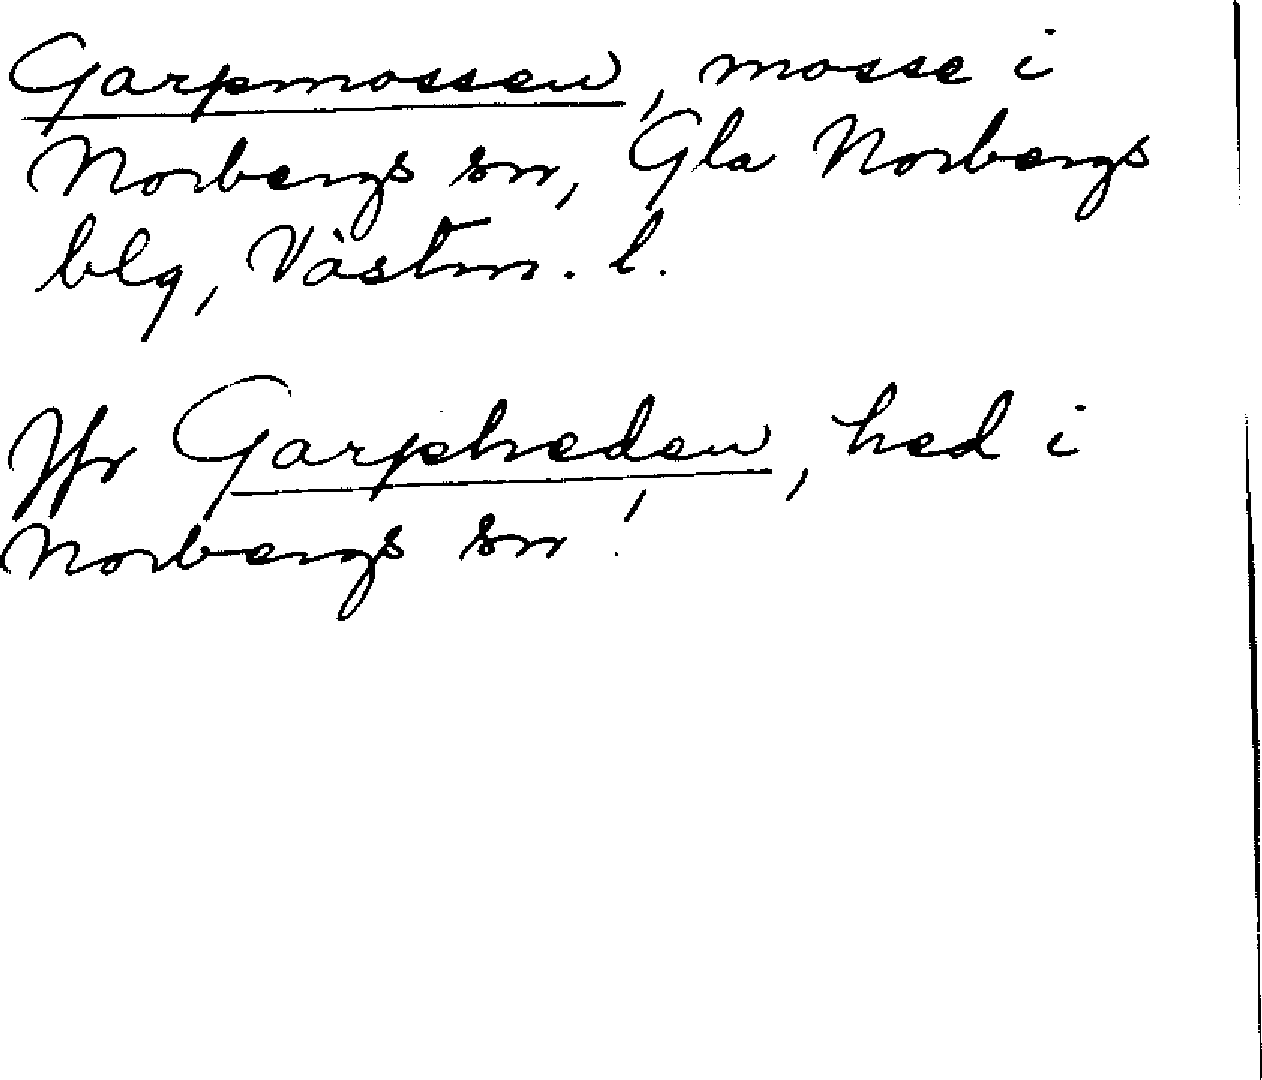 Garpmossen, mosse i
Norbergs sn, Gla Norbergs
blg, Västm. l.
Jfr Garpheden, hed i
Norbergs sn!